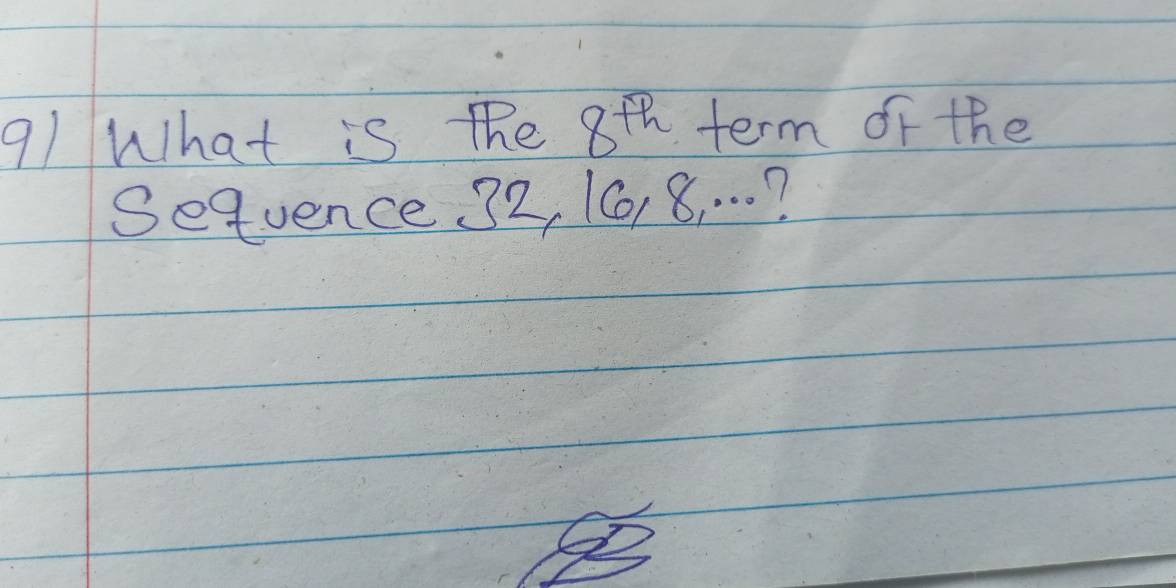 9) What is the 8th term of the
Sequence 32, 16, 8, ...?